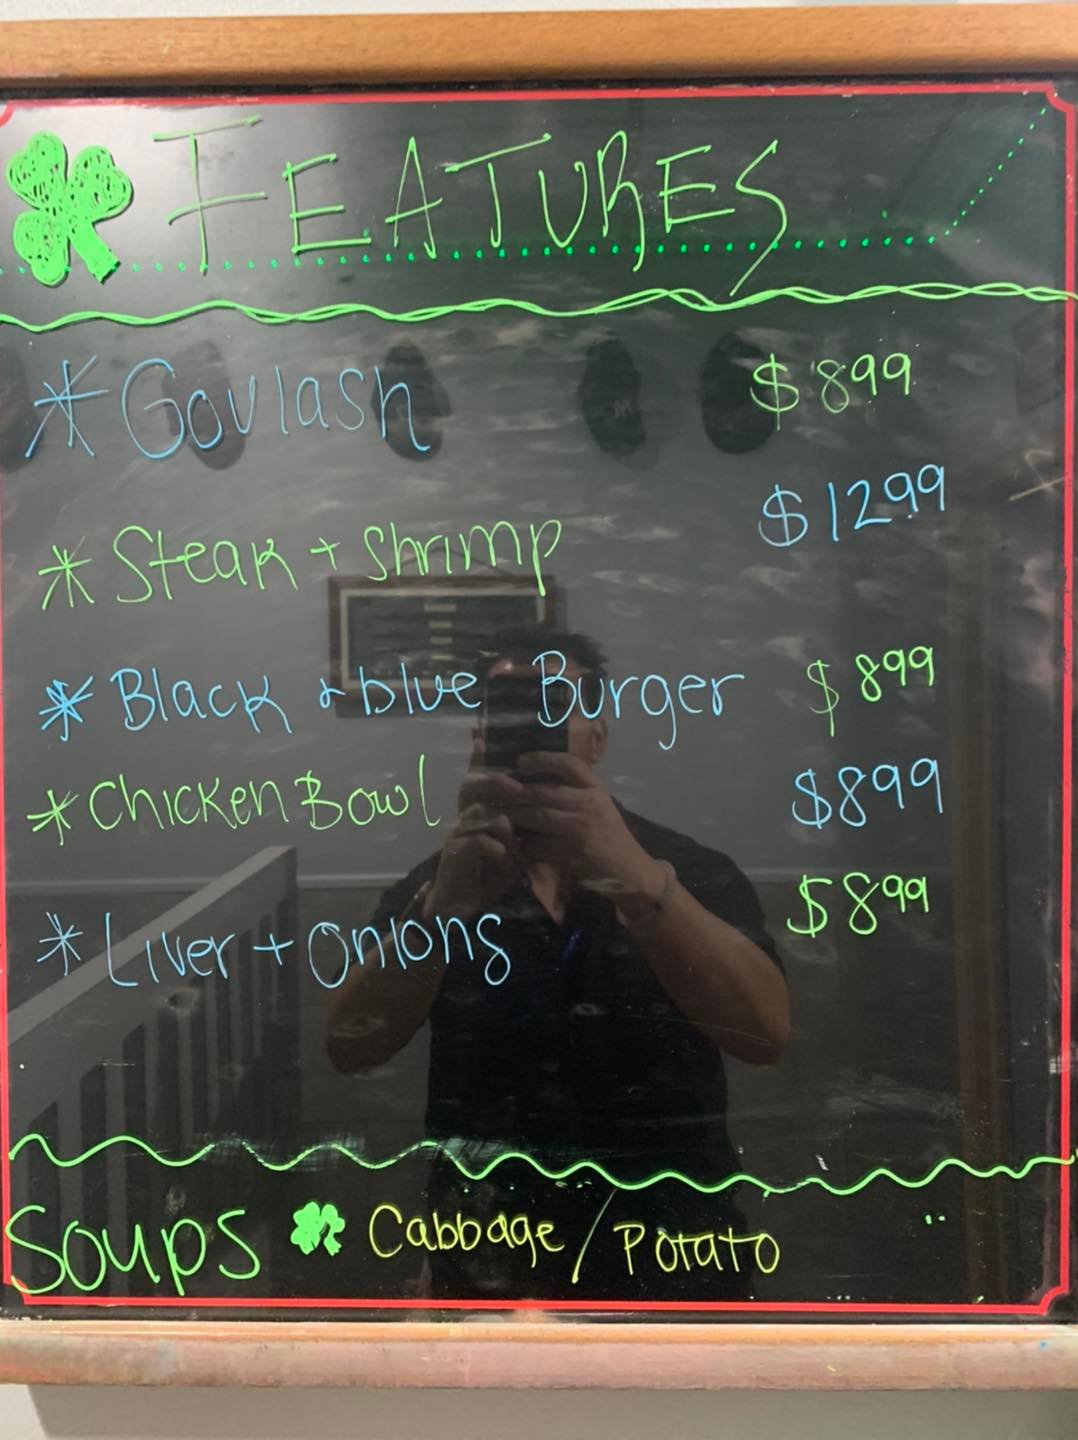 FEATURES
* Goulash $899
* Steak + Shrimp $1299
* Black + blue Burger $899
* Chicken Bowl $899
* Liver + Onions $899
Soups Cabbage / Potato